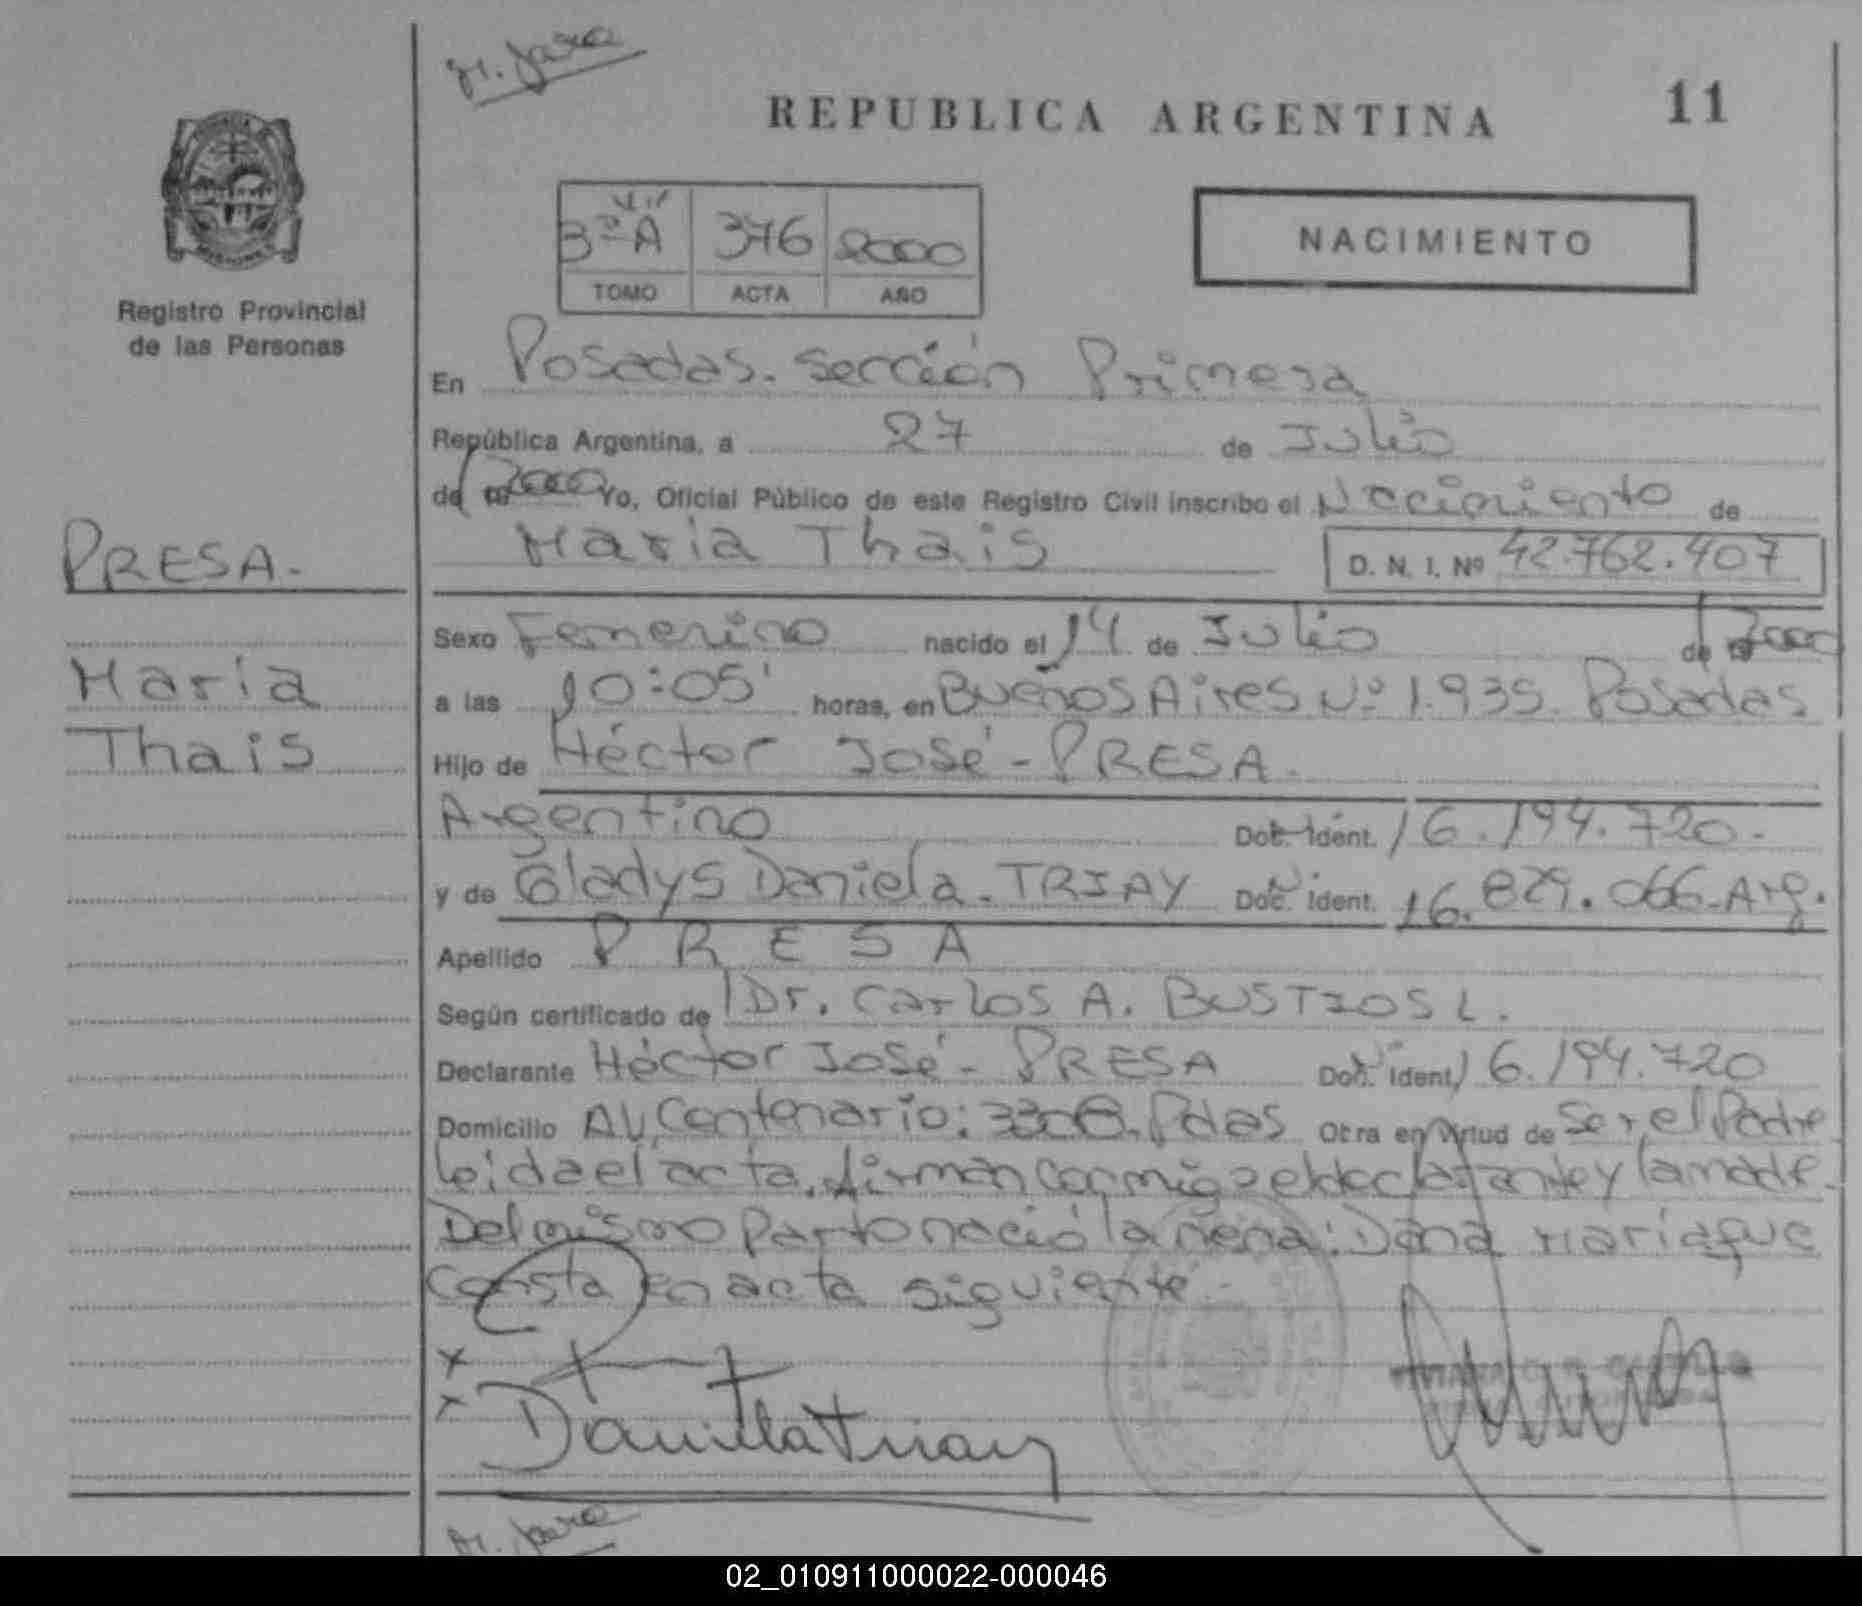 M. Jara
REPUBLICA ARGENTINA
11
Registro Provincial
de las Personas
3º A 376 2000
TOMO ACTA AÑO
NACIMIENTO
En Posadas. Sección Primera
República Argentina, a 27 de Julio
de 2000 Yo, Oficial Público de este Registro Civil inscribo el Nacimiento de
María Thais
D. N. I. Nº 42.762.407
PRESA.
María
Thais
Sexo Femenino nacido el 14 de Julio de 2000
a las 10:05' horas, en Buenos Aires Nº 1.935. Posadas
Hijo de Héctor José - PRESA.
Argentino Doc. Ident. 16.194.720.
y de Gladys Daniela. TRIAY Doc. Ident. 16.829.066-Arg.
Apellido PRESA
Según certificado de Dr. Carlos A. BUSTIOS L.
Declarante Héctor José - PRESA Doc. Ident. 16.194.720
Domicilio Av. Centenario: Pdas Otra en virtud de Ser, el Padre
leida el acta, firman conmigo el declarante y la madre.
Del mismo parto nació la nena: Dana María que
Consta en acta siguiente.
x
x Daniela Triay
M. Jara
02_010911000022-000046